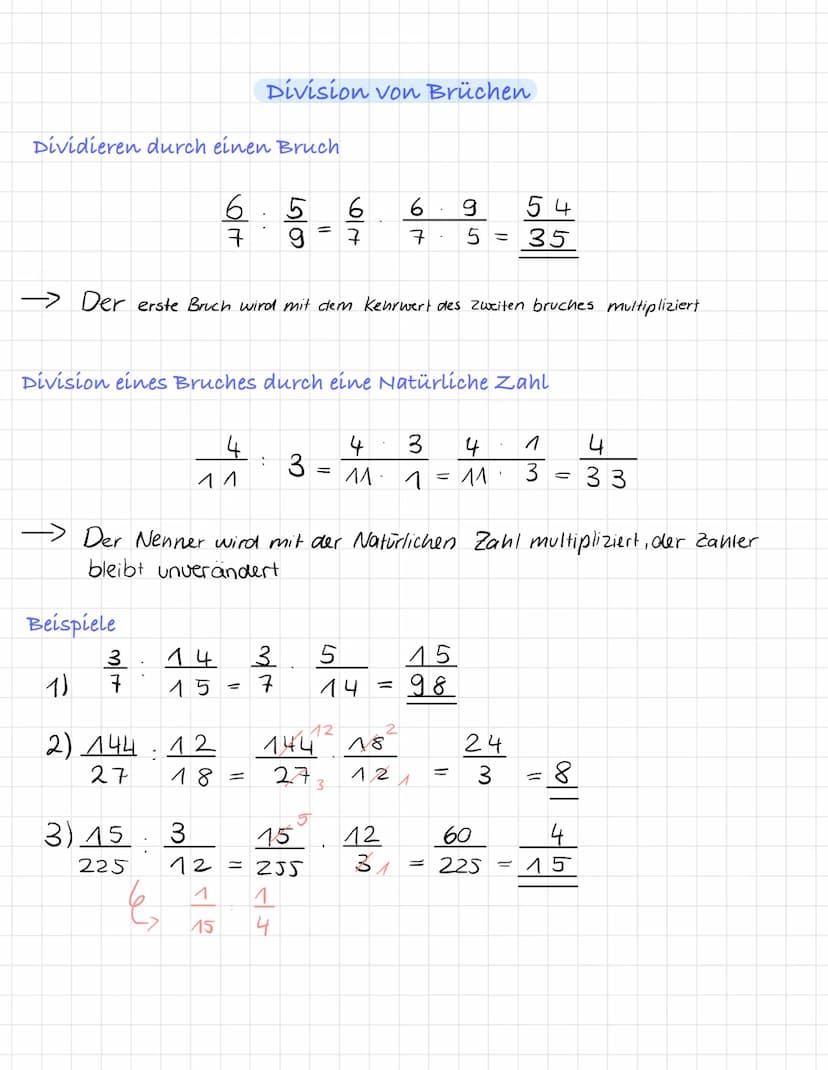 Division von Brüchen
Dividieren durch einen Bruch
6/7 : 5/9 = 6/7 · (6 · 9)/(7 · 5) = 54/35
→ Der erste Bruch wird mit dem Kehrwert des zweiten bruches multipliziert
Division eines Bruches durch eine Natürliche Zahl
4/11 : 3 = (4 · 3)/(11 · 1) = (4 · 1)/(11 · 3) = 4/33
→ Der Nenner wird mit der Natürlichen Zahl multipliziert, der Zähler
bleibt unverändert
Beispiele
1) 3/7 : 14/15 = 3/7 · 5/14 = 15/98
2) 144/27 : 12/18 = 144/27 · 18/12 = 24/3 = 8
12 2
3 1
3) 15/225 : 3/12 = 15/255 · 12/3 = 60/225 = 4/15
5
1
1/15 : 1/4